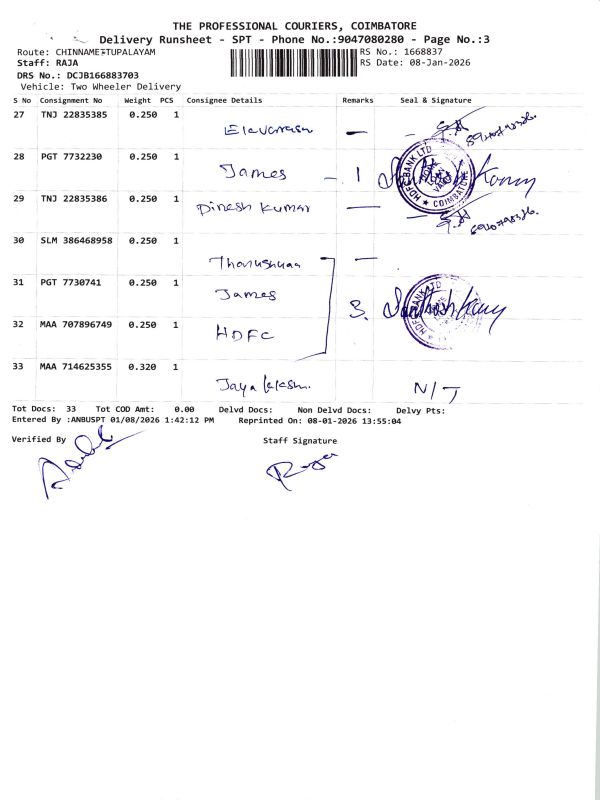 THE PROFESSIONAL COURIERS, COIMBATORE
Delivery Runsheet - SPT - Phone No.:9047080280 - Page No.:3
Route: CHINNAMETTUPALAYAM
RS No.: 1668837
Staff: RAJA
RS Date: 08-Jan-2026
DRS No.: DCJB166883703
Vehicle: Two Wheeler Delivery
S No Consignment No Weight PCS Consignee Details Remarks Seal & Signature
27 TNJ 22835385 0.250 1
28 PGT 7732230 0.250 1 James 1
HDFC BANK LTD
COIMBATORE
29 TNJ 22835386 0.250 1 Dinesh Kumar
30 SLM 386468958 0.250 1
31 PGT 7730741 0.250 1 James 3.
HDFC BANK LTD
32 MAA 707896749 0.250 1 HDFC
33 MAA 714625355 0.320 1 N/T
Tot Docs: 33 Tot COD Amt: 0.00 Delvd Docs: Non Delvd Docs: Delvy Pts:
Entered By :ANBUSPT 01/08/2026 1:42:12 PM Reprinted On: 08-01-2026 13:55:04
Verified By Staff Signature